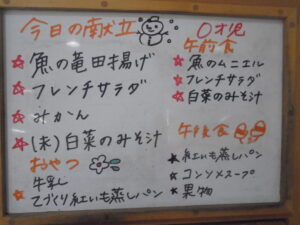 今日の献立
魚の竜田揚げ
フレンチサラダ
みかん
(未)白菜のみそ汁
おやつ
牛乳
てづくり紅いも蒸しパン
0才児
午前食
魚のムニエル
フレンチサラダ
白菜のみそ汁
午後食
紅いも蒸しパン
コンソメスープ
果物